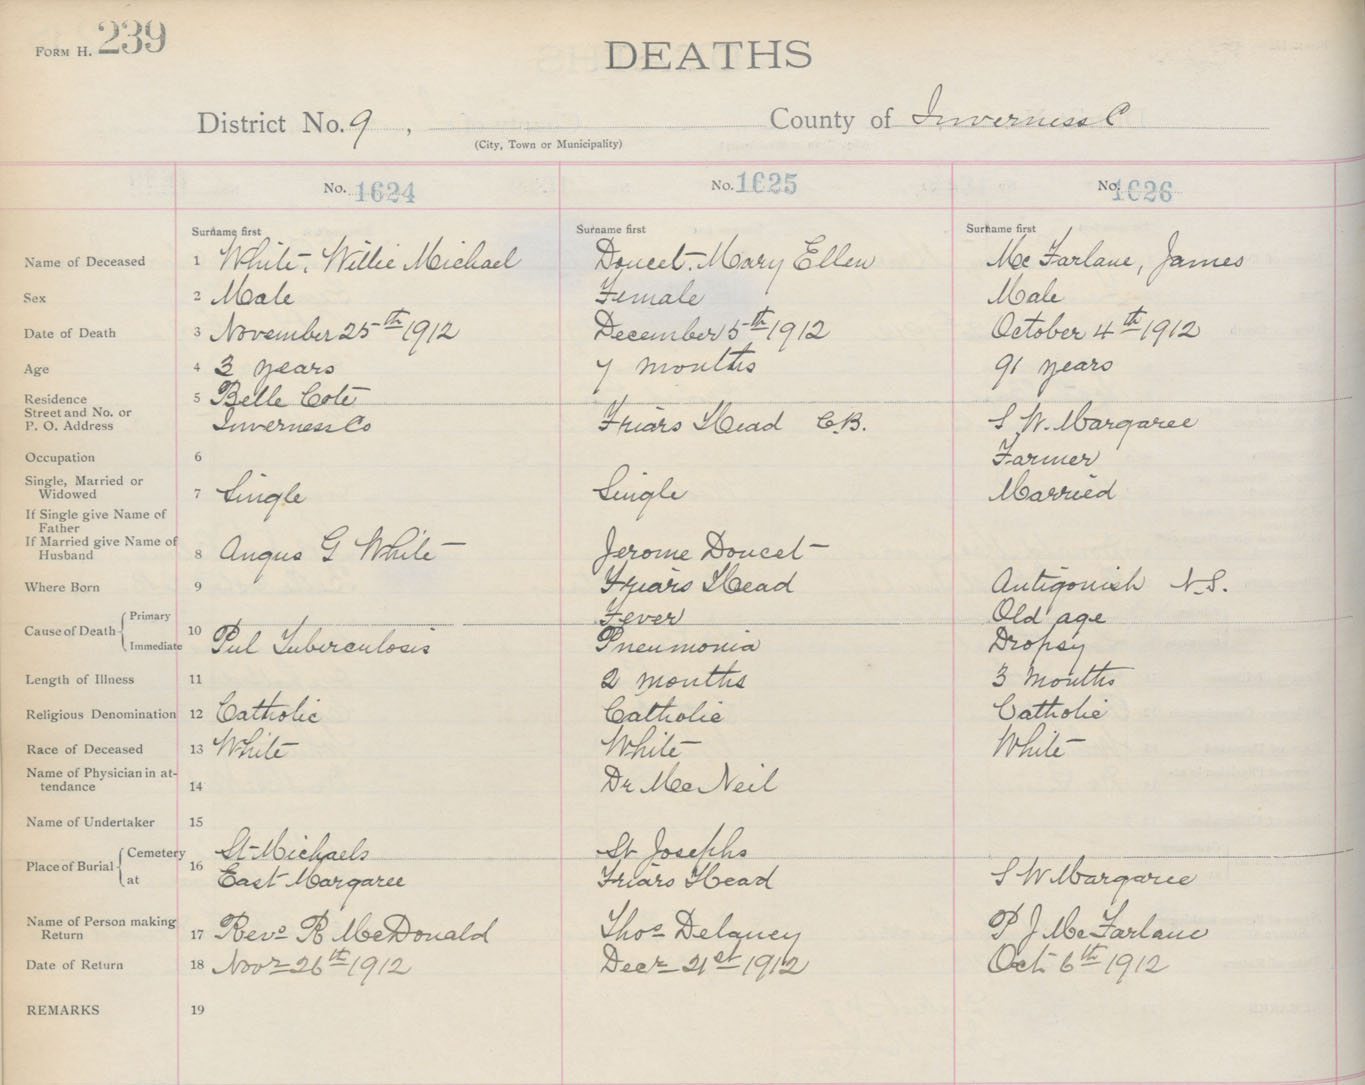 FORM H. 239
DEATHS
District No. 9, County of Inverness C
(City, Town or Municipality)
No. 1624 No. 1625 No. 1626
Surname first Surname first Surname first
Name of Deceased 1 White, Willie Michael Doucet. Mary Ellen Mc Farlane, James
Sex 2 Male Female Male
Date of Death 3 November 25th 1912 December 5th 1912 October 4th 1912
Age 4 3 years 7 months 91 years
Residence 5 Belle Cote
Street and No. or
P. O. Address Inverness Co Friars Head C.B. S W. Margaree
Occupation 6 Farmer
Single, Married or
Widowed 7 Single Single Married
If Single give Name of
Father
If Married give Name of
Husband 8 Angus G White Jerome Doucet
Where Born 9 Friars Head Antigonish N.S.
Primary Fever Old age
Cause of Death 10
Immediate Pul Tuberculosis Pneumonia Dropsy
Length of Illness 11 2 months 3 months
Religious Denomination 12 Catholic Catholic Catholic
Race of Deceased 13 White White White
Name of Physician in at-
tendance 14 Dr MacNeil
Name of Undertaker 15
Cemetery St Michaels St Josephs
Place of Burial 16
at East Margaree Friars Head S W Margaree
Name of Person making
Return 17 Revd R McDonald Thos Delaney P J McFarlane
Date of Return 18 Novr 26th 1912 Decr 21st 1912 Oct 6th 1912
REMARKS 19